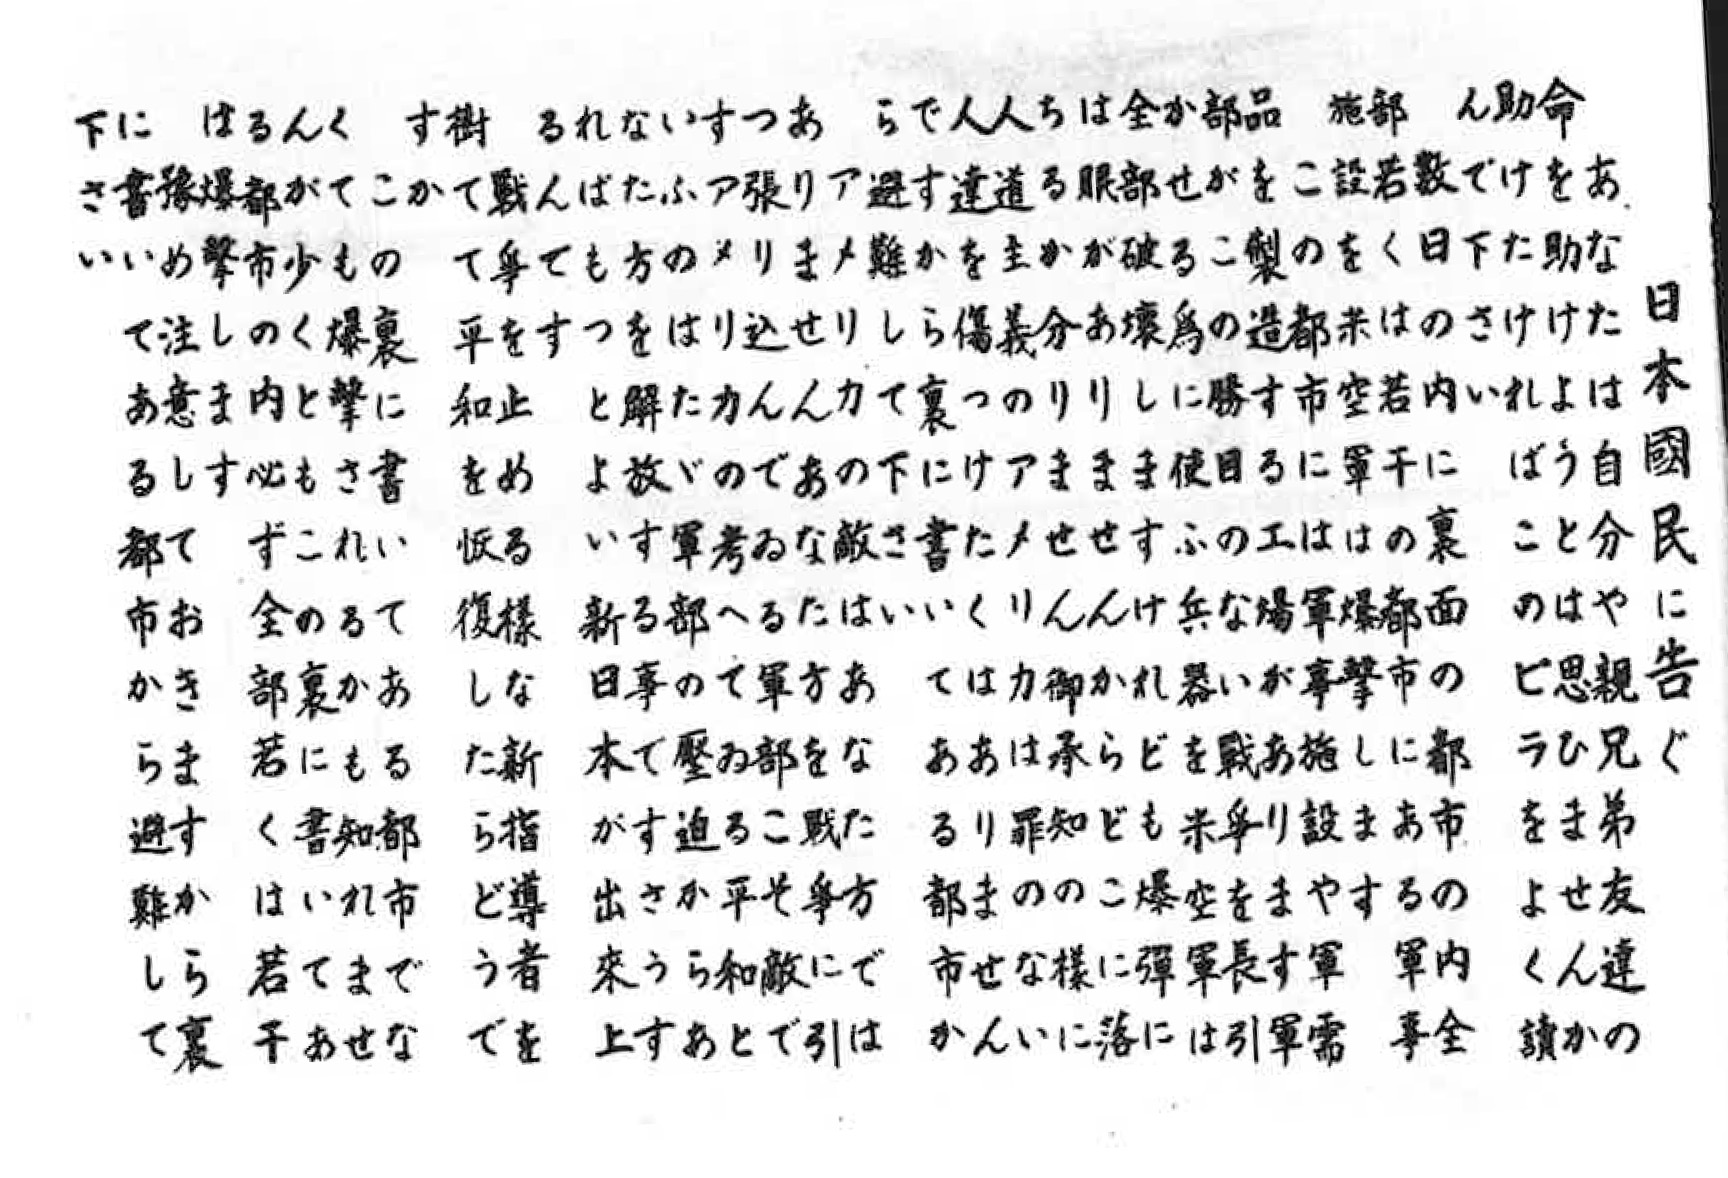 日本國民に告ぐ
あなたは自分や親兄弟友達の
命を助けようとは思ひませんか
助けたければこのビラをよく讀
んで下さい
数日の内に裏面の都市の内全
部若くは若干の都市にある軍事
施設を米軍は爆撃します
この都市には軍事施設や軍需
品を製造する工場があります軍
部がこの勝目のない戰爭を長引
かせる為に使ふ兵器を米空軍は
全部破壊しますけれども爆彈に
は眼がありませんからどこに落
ちるか分りません御承知の様に
人道主義のアメリカは罪のない
人達を傷つけたくはありません
ですから裏に書いてある都市か
ら避難して下さい
アメリカの敵はあなた方では
ありませんあなた方を戰爭に引
つ張り込んでゐる軍部こそ敵で
すアメリカの考へてゐる平和と
いふのはたゞ軍部の壓迫からあ
なた方を解放する事ですさうす
ればもつとよい新日本が出來上
るんです
戰爭を止める様な新指導者を
樹てて平和を恢復したらどうで
すか
この裏に書いてある都市でな
くても爆撃されるかも知れませ
んが少くともこの裏に書いてあ
る都市の内必ず全部若くは若干
は爆撃します
豫め注意しておきますから裏
に書いてある都市から避難して
下さい